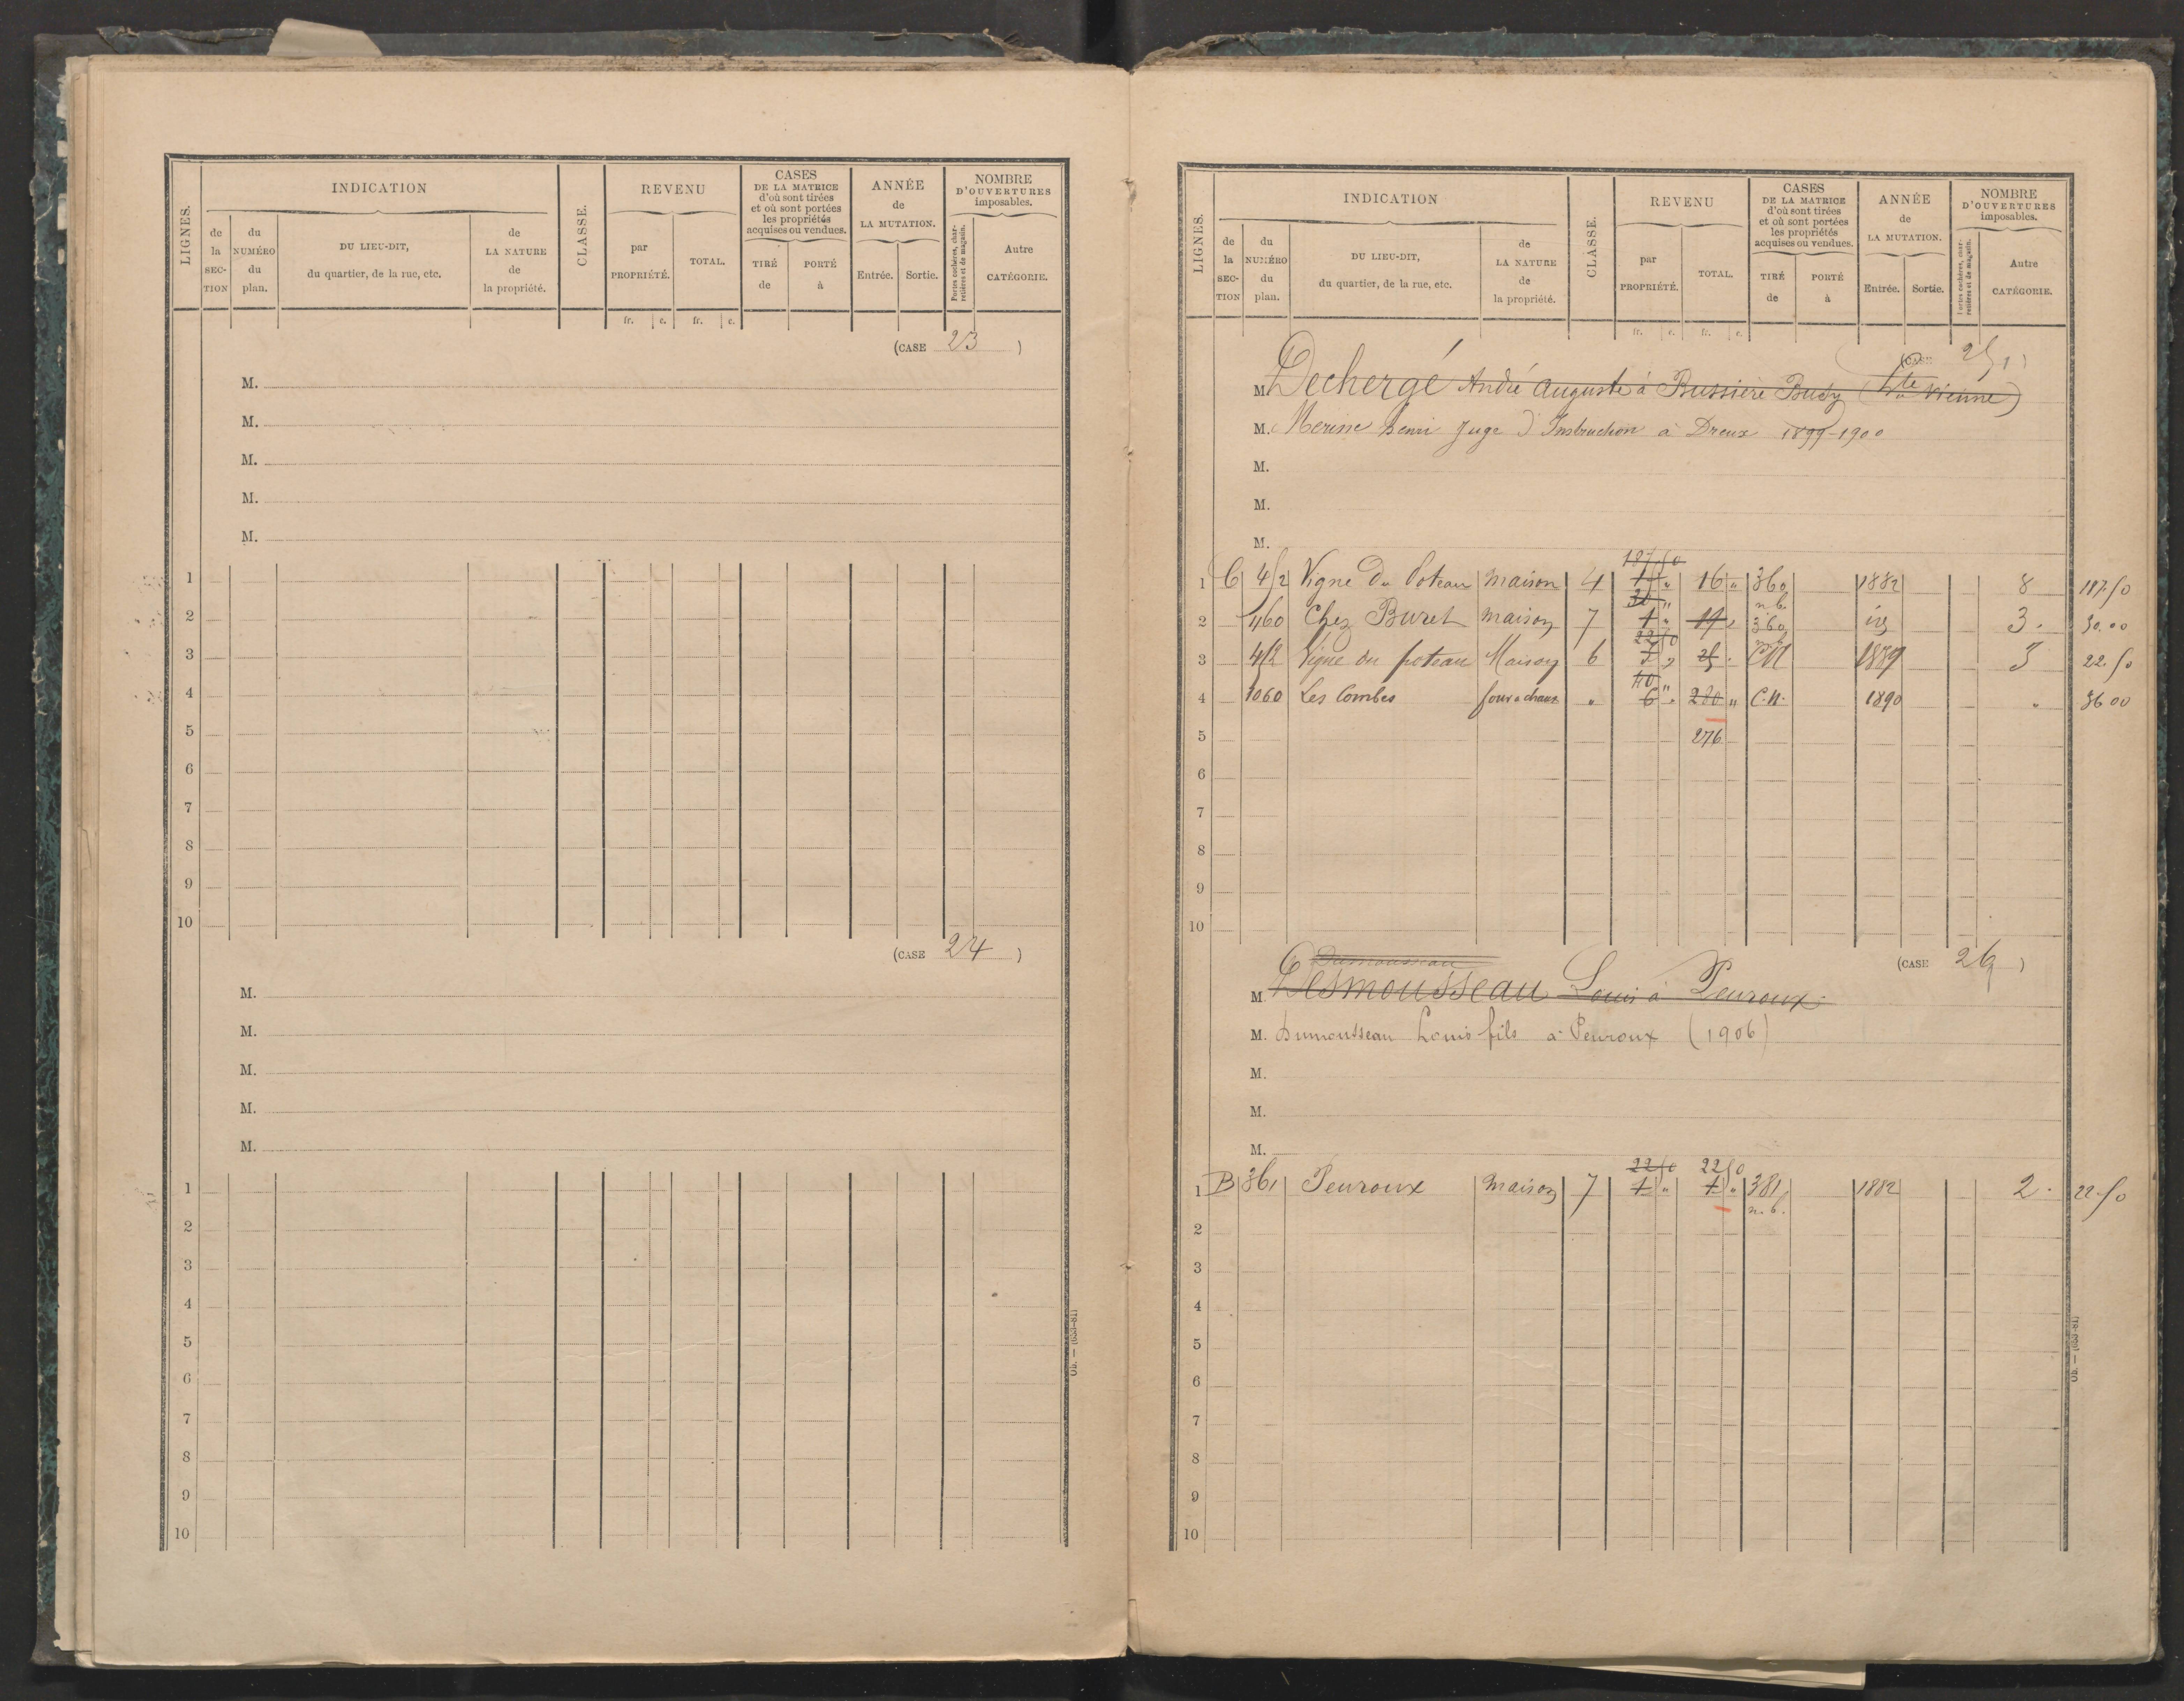 LIGNES.
INDICATION
de la SECTION
du NUMÉRO du plan.
DU LIEU-DIT, du quartier, de la rue, etc.
de LA NATURE de la propriété.
CLASSE.
REVENU
par PROPRIÉTÉ.
TOTAL.
CASES DE LA MATRICE d'où sont tirées et où sont portées les propriétés acquises ou vendues.
TIRÉ de
PORTÉ à
ANNÉE de LA MUTATION.
Entrée.
Sortie.
NOMBRE D'OUVERTURES imposables.
Portes cochères, charretières et de magasin.
Autre CATÉGORIE.
fr. c. fr. c.
(CASE 23)
M.
M.
M.
M.
M.
1
2
3
4
5
6
7
8
9
10
(CASE 24)
M.
M.
M.
M.
M.
1
2
3
4
5
6
7
8
9
10
Ob. — (653-81)
LIGNES.
INDICATION
de la SECTION
du NUMÉRO du plan.
DU LIEU-DIT, du quartier, de la rue, etc.
de LA NATURE de la propriété.
CLASSE.
REVENU
par PROPRIÉTÉ.
TOTAL.
CASES DE LA MATRICE d'où sont tirées et où sont portées les propriétés acquises ou vendues.
TIRÉ de
PORTÉ à
ANNÉE de LA MUTATION.
Entrée.
Sortie.
NOMBRE D'OUVERTURES imposables.
Portes cochères, charretières et de magasin.
Autre CATÉGORIE.
fr. c. fr. c.
(CASE 25)
M. Dechergé André Auguste à Bussière Boffy (Hte Vienne)
M. Merine henri Juge d'Instruction à Dreux 1899-1900
M.
M.
M.
187 50
1 C 452 Vigne du Poteau maison 4 16 " 360 1882 8 187.50
30 " n.b.
2 460 Chez Buret maison 7 1 " 360 3. 30.00
22 50 n.b.
3 452 Vigne du poteau Maison 6 CN 1889 3 22.50
40 "
4 1060 Les Combes four a chaux " 6 " 280 " C.N. 1890 " 36 00
5 276
6
7
8
9
10
(CASE 26)
Dumousseau
M. Desmousseau Louis à Peuroux
M. Dumousseau Louis fils à Peuroux (1906)
M.
M.
M.
22 50 22 50
1 B 361 Peuroux maison 7 1 " 1 " 381 1882 2. 22.50
n.b.
2
3
4
5
6
7
8
9
10
Ob. — (653-81)